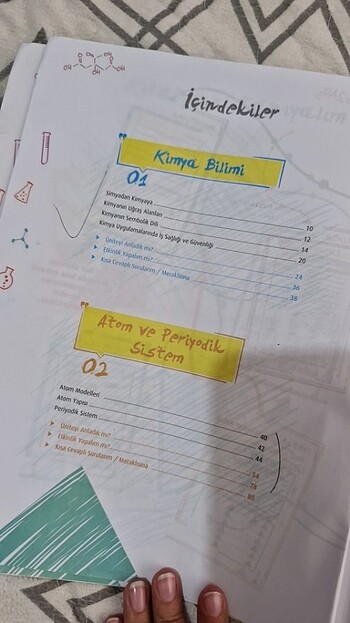 İçindekiler
Kimya Bilimi
01
Simyadan Kimyaya 10
Kimyanın Uğraş Alanları 12
Kimyanın Sembolik Dili 14
Kimya Uygulamalarında İş Sağlığı ve Güvenliği 20
Üniteyi Anladık mı? 24
Etkinlik Yapalım mı? 36
Kısa Cevaplı Sorularım / Meraklısına 38
Atom ve Periyodik
Sistem
02
Atom Modelleri 40
Atom Yapısı 42
Periyodik Sistem 44
Üniteyi Anladık mı? 54
Etkinlik Yapalım mı? 78
Kısa Cevaplı Sorularım / Meraklısına 80